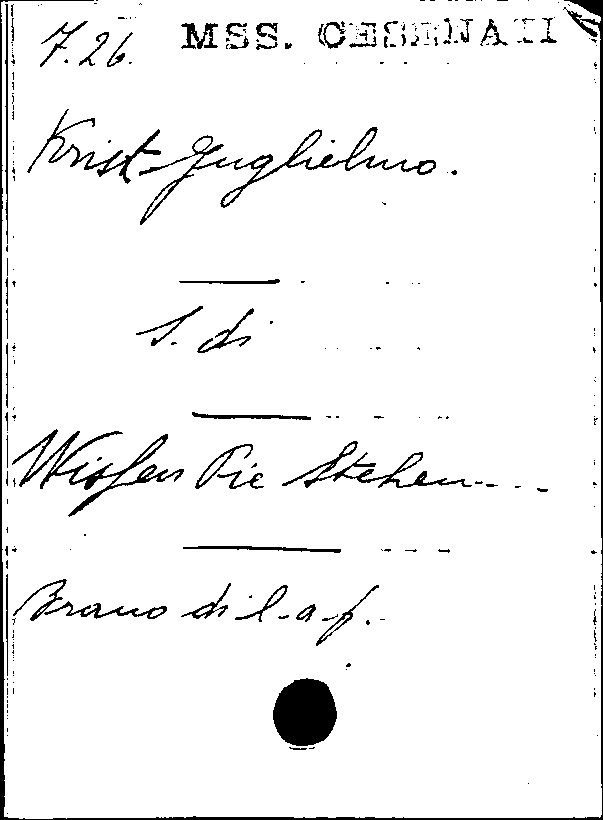 7.26. MSS. CESENATI
Krist Guglielmo.
S. di
Wissen Sie Stehen....
Brano di l. a f.